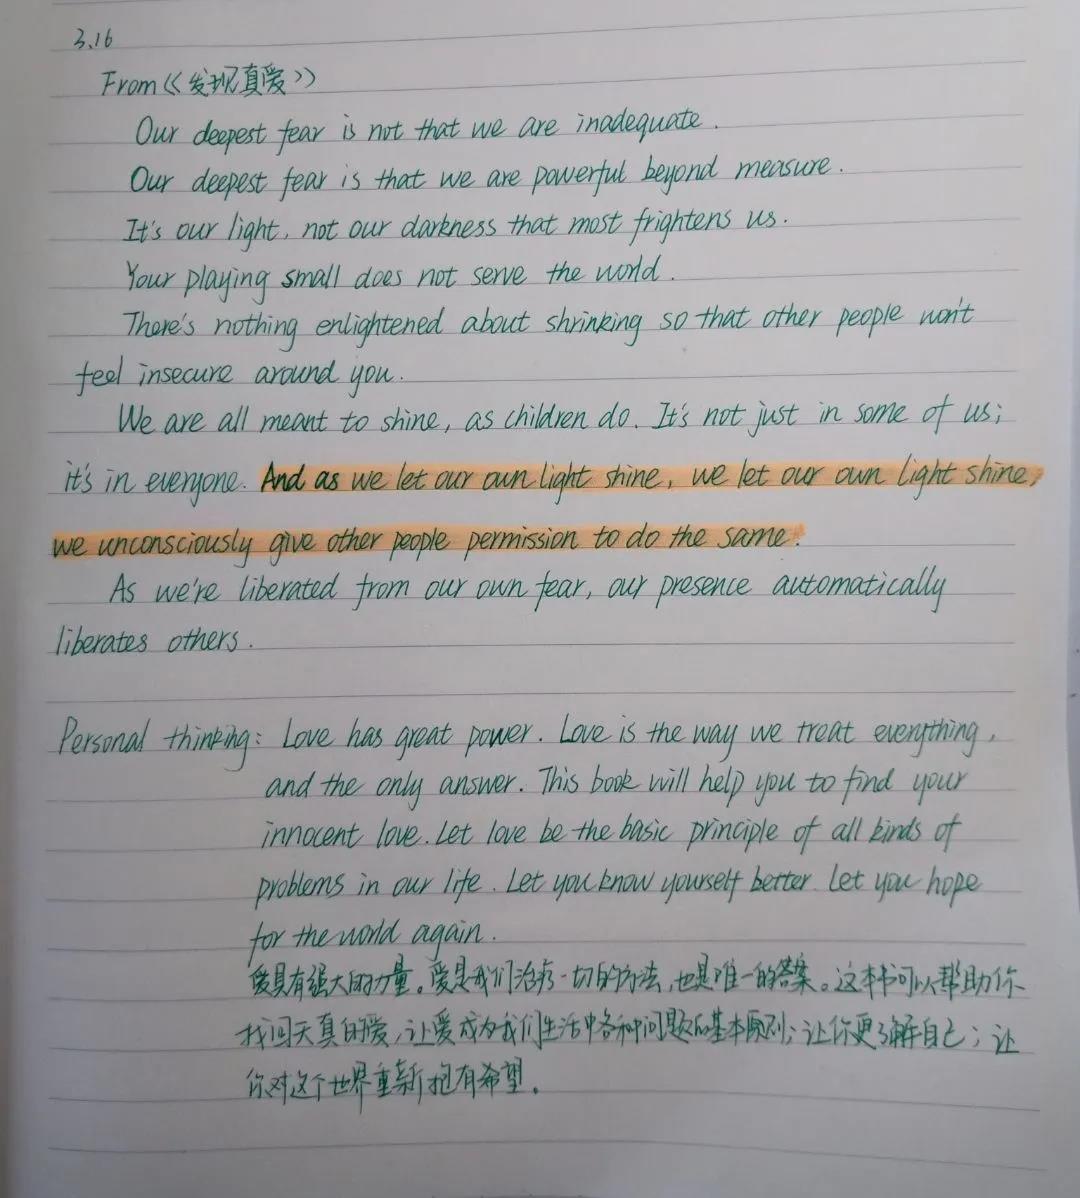 3.16
From《发现真爱》
Our deepest fear is not that we are inadequate.
Our deepest fear is that we are powerful beyond measure.
It's our light, not our darkness that most frightens us.
Your playing small does not serve the world.
There's nothing enlightened about shrinking so that other people won't
feel insecure around you.
We are all meant to shine, as children do. It's not just in some of us;
it's in everyone. And as we let our own light shine, we let our own light shine,
we unconsciously give other people permission to do the same.
As we're liberated from our own fear, our presence automatically
liberates others.
Personal thinking: Love has great power. Love is the way we treat everything,
and the only answer. This book will help you to find your
innocent love. Let love be the basic principle of all kinds of
problems in our life. Let you know yourself better. Let you hope
for the world again.
爱具有强大的力量。爱是我们治疗一切的方法,也是唯一的答案。这本书可以帮助你
找回天真的爱,让爱成为我们生活中各种问题的基本原则;让你更了解自己;让
你对这个世界重新抱有希望。